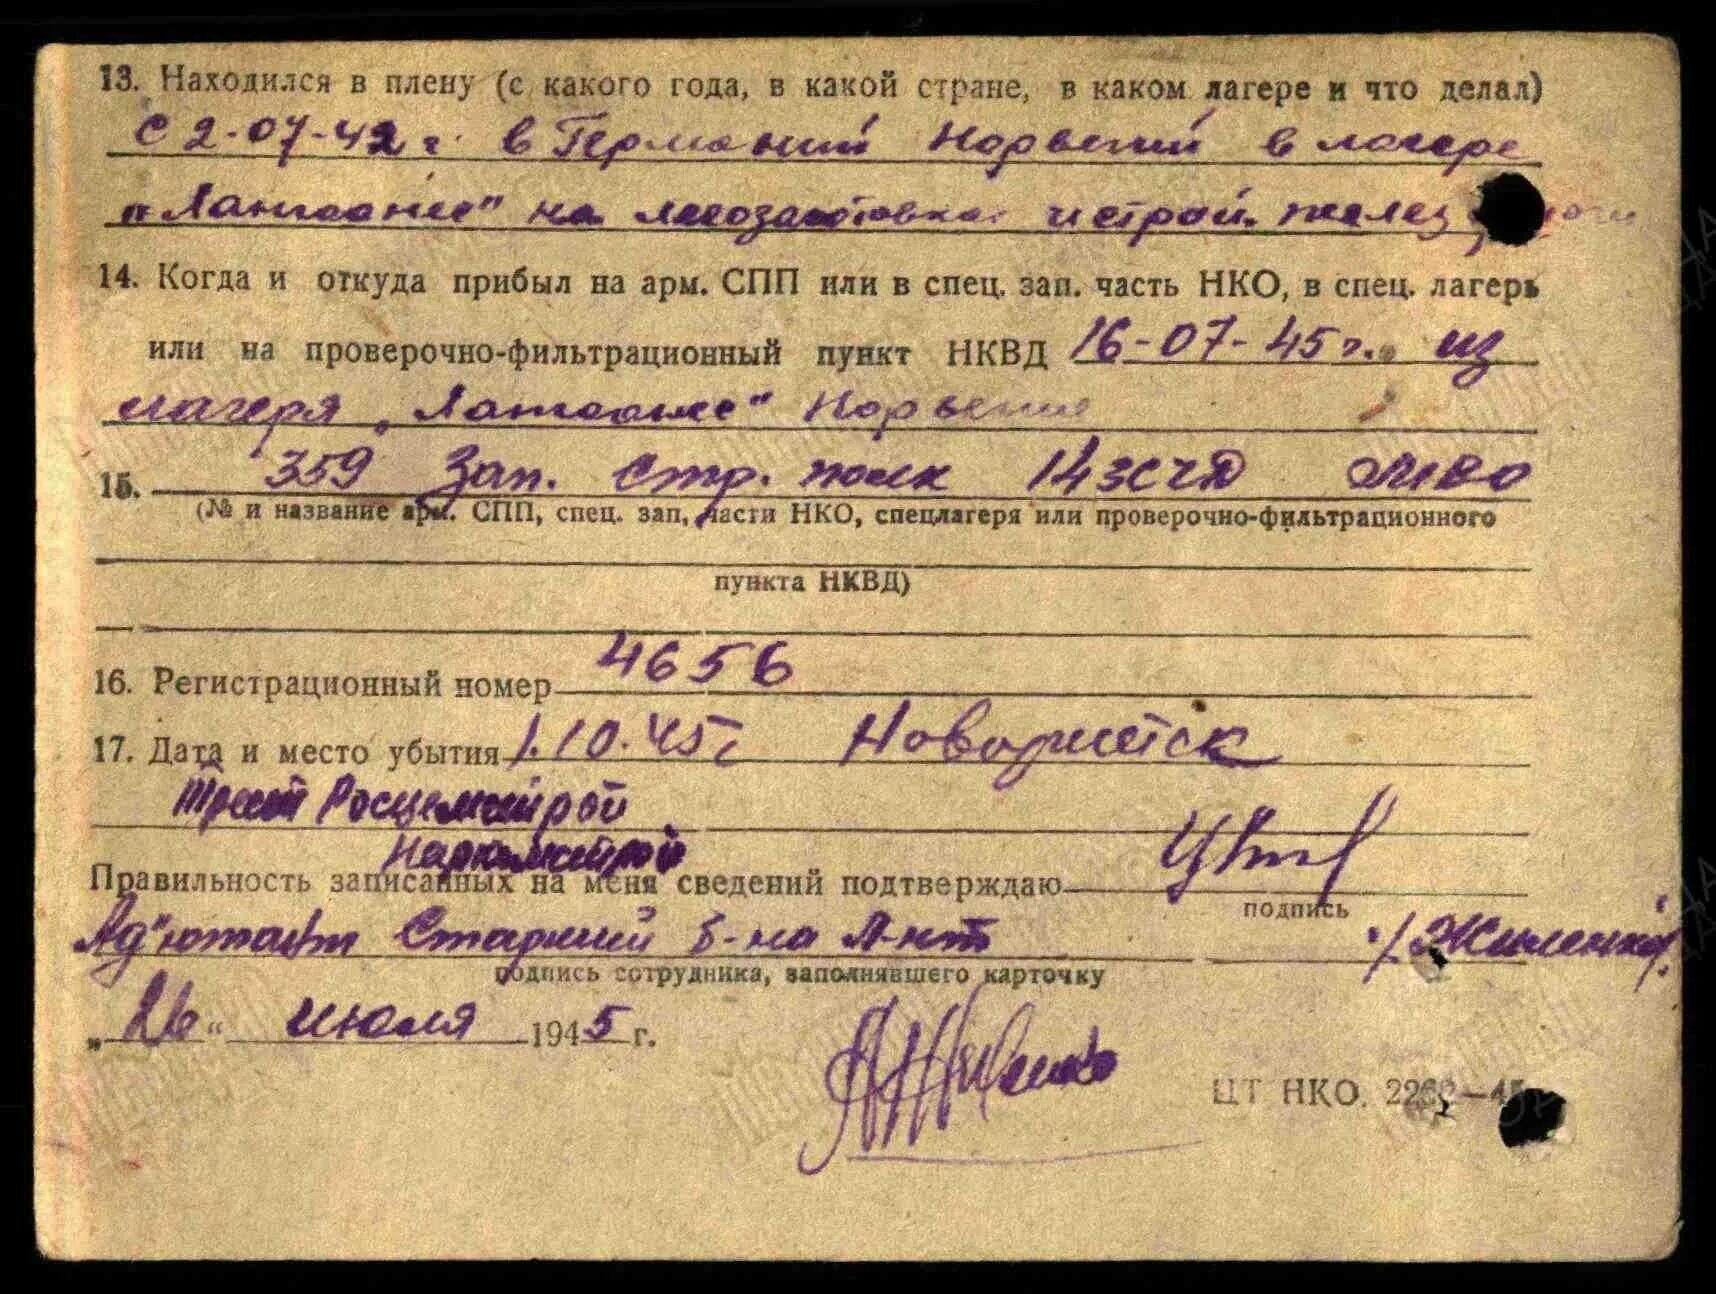 13. Находился в плену (с какого года, в какой стране, в каком лагере и что делал)
С 2-07-42 г. в Германии Норвегии в лагере
на лесозаготовках и строй. желез
14. Когда и откуда прибыл на арм. СПП или в спец. зап. часть НКО, в спец. лагерь
или на проверочно-фильтрационный пункт НКВД 16-07-45 г. из
лагеря Норвегия
15. 359 Зап. Стр. полк 14 ЗСД
(№ и название арм. СПП, спец. зап, части НКО, спецлагеря или проверочно-фильтрационного
пункта НКВД)
16. Регистрационный номер 4656
17. Дата и место убытия 1.10.45 г
Трест Росцемстрой
Правильность записанных на меня сведений подтверждаю
подпись
Ад"ютант Старший б-на Л-нт /Жиленко/
подпись сотрудника, заполнявшего карточку
„26" июля 1945 г.
ЦТ НКО.